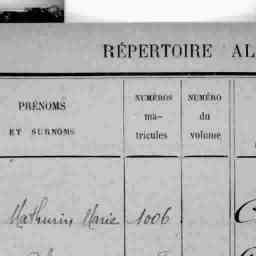 RÉPERTOIRE AL
PRÉNOMS
ET SURNOMS
NUMÉROS
ma-
tricules
NUMÉRO
du
volume
Mathurin Marie 1006